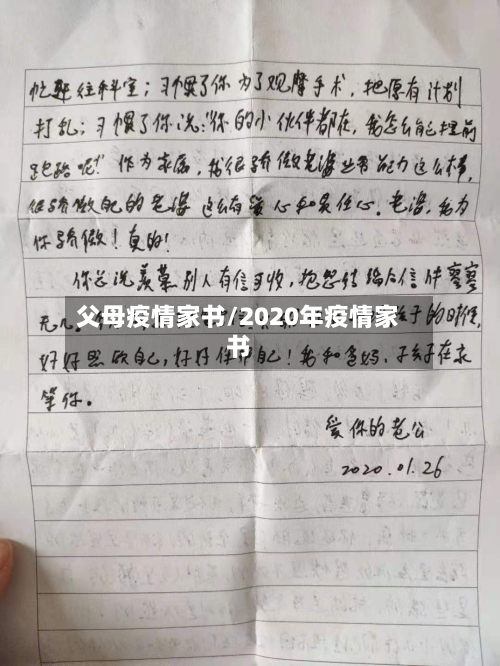 忙赶往科室；习惯了你为了观摩手术，把原有计划
打乱；习惯了你说：“你的小伙伴都在，我怎么自己提前
跑路呢！作为家属，我很骄傲老婆业务能力这么棒，
很骄傲自己的老婆这么有爱心和责任心。老婆，我为
你骄傲！真的！
你总说羡慕别人有信可收，抱怨结婚后信件寥寥
无几。
父母疫情家书/2020年疫情家
书
子的时候，
好好照顾自己，好好保护自己！我和爸妈、孩子在家
等你。
爱你的老公
2020.01.26